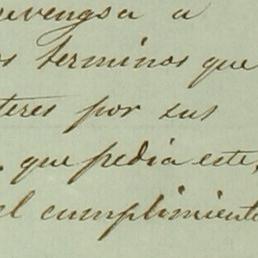 devengsa a
os terminos que
teres por sus
que pedia este,
el cumplimiento